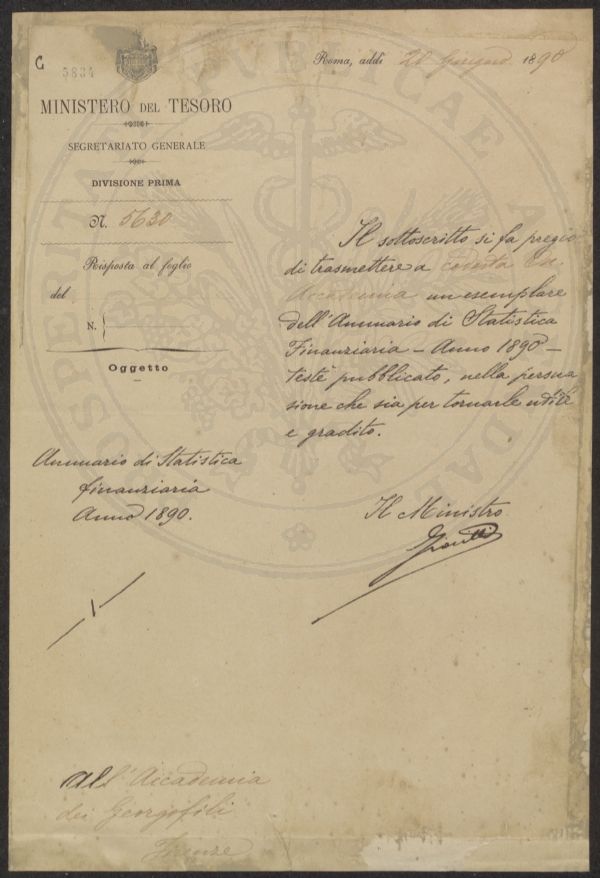 C
5834
Roma, addì 21 Giugno 1890
MINISTERO DEL TESORO
SEGRETARIATO GENERALE
DIVISIONE PRIMA
N. 5630
Risposta al foglio
del
N.
Oggetto
Annuario di Statistica
finanziaria
Anno 1890.
Il sottoscritto si fa pregio
di trasmettere a codesta On.
Accademia un esemplare
dell'Annuario di Statistica
Finanziaria – Anno 1890 –
testè pubblicato, nella persua
sione che sia per tornarle utile
e gradito.
Il Ministro
Giolitti
All'Accademia
dei Georgofili
Firenze
PROSPERITATI PVBLICAE AVGENDAE